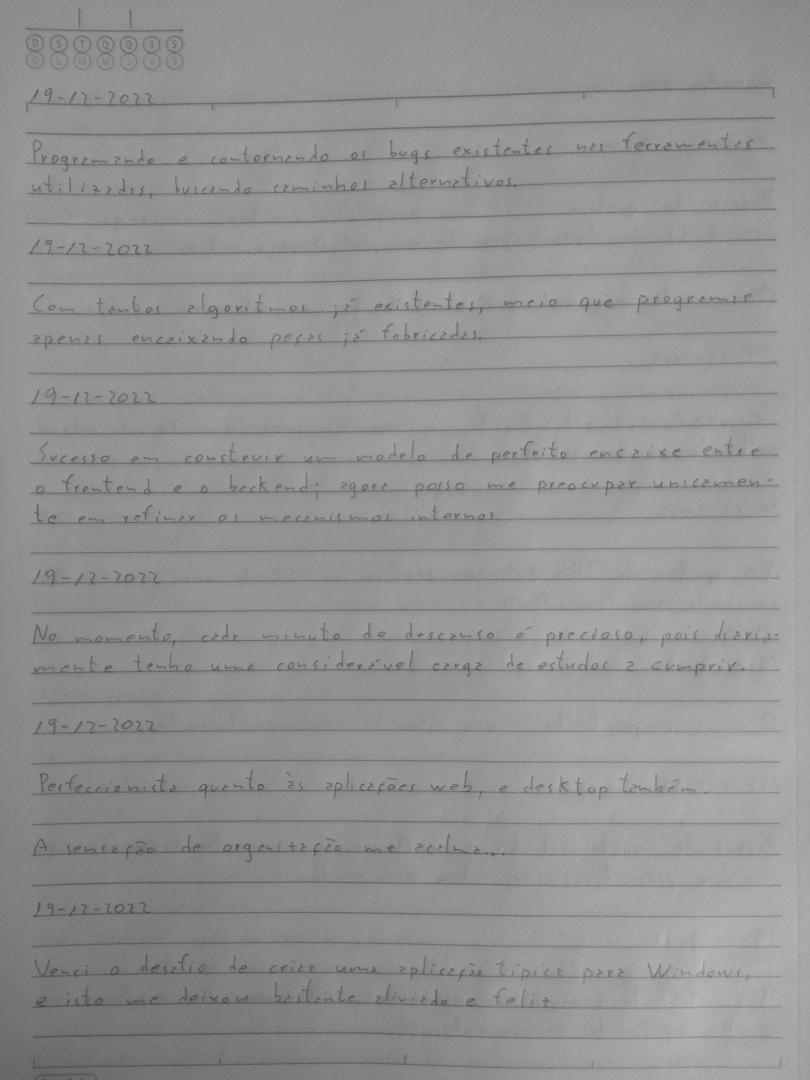 D S T Q Q S S
D L M M J V S
19-12-2022
Programando e contornando os bugs existentes nas ferramentas
utilizadas, buscando caminhos alternativos.
19-12-2022
Com tantos algoritmos já existentes, meio que programar
apenas encaixando peças já fabricadas.
19-12-2022
Sucesso em construir um modelo de perfeito encaixe entre
o frontend e o backend; agora posso me preocupar unicamen-
te em refinar os mecanismos internos.
19-12-2022
No momento, cada minuto de descanso é precioso, pois diaria-
mente tenho uma considerável carga de estudos a cumprir.
19-12-2022
Perfeccionista quanto às aplicações web, e desktop também.
A sensação de organização me acalma...
19-12-2022
Venci o desafio de criar uma aplicação típica para Windows,
e isto me deixou bastante aliviado e feliz.